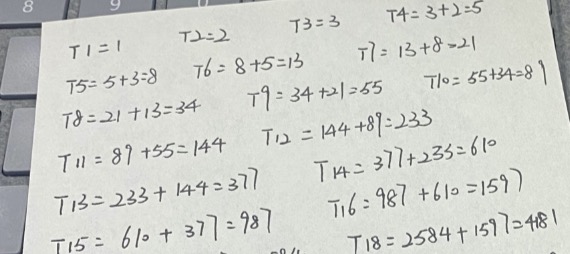 8 9
T1=1 T2=2 T3=3 T4=3+2=5
T5=5+3=8 T6=8+5=13 T7=13+8=21
T8=21+13=34 T9=34+21=55 T10=55+34=89
T11=89+55=144 T12=144+89=233
T13=233+144=377 T14=377+233=610
T15=610+377=987 T16=987+610=1597
T18=2584+1597=4181